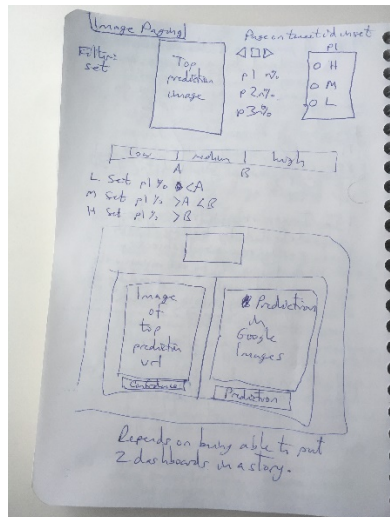 Image Paging
Page on tweet id in set
Filter:
set
Top
prediction
image
p1 %
p2 %
p3 %
p1
H
M
L
low | medium | high
A B
L set p1 % <A
M set p1 % >A <B
H set p1 % >B
Image
of
top
prediction
url
Prediction
in
Google
Images
Confidence
Prediction
Depends on being able to put
2 dashboards in a story.